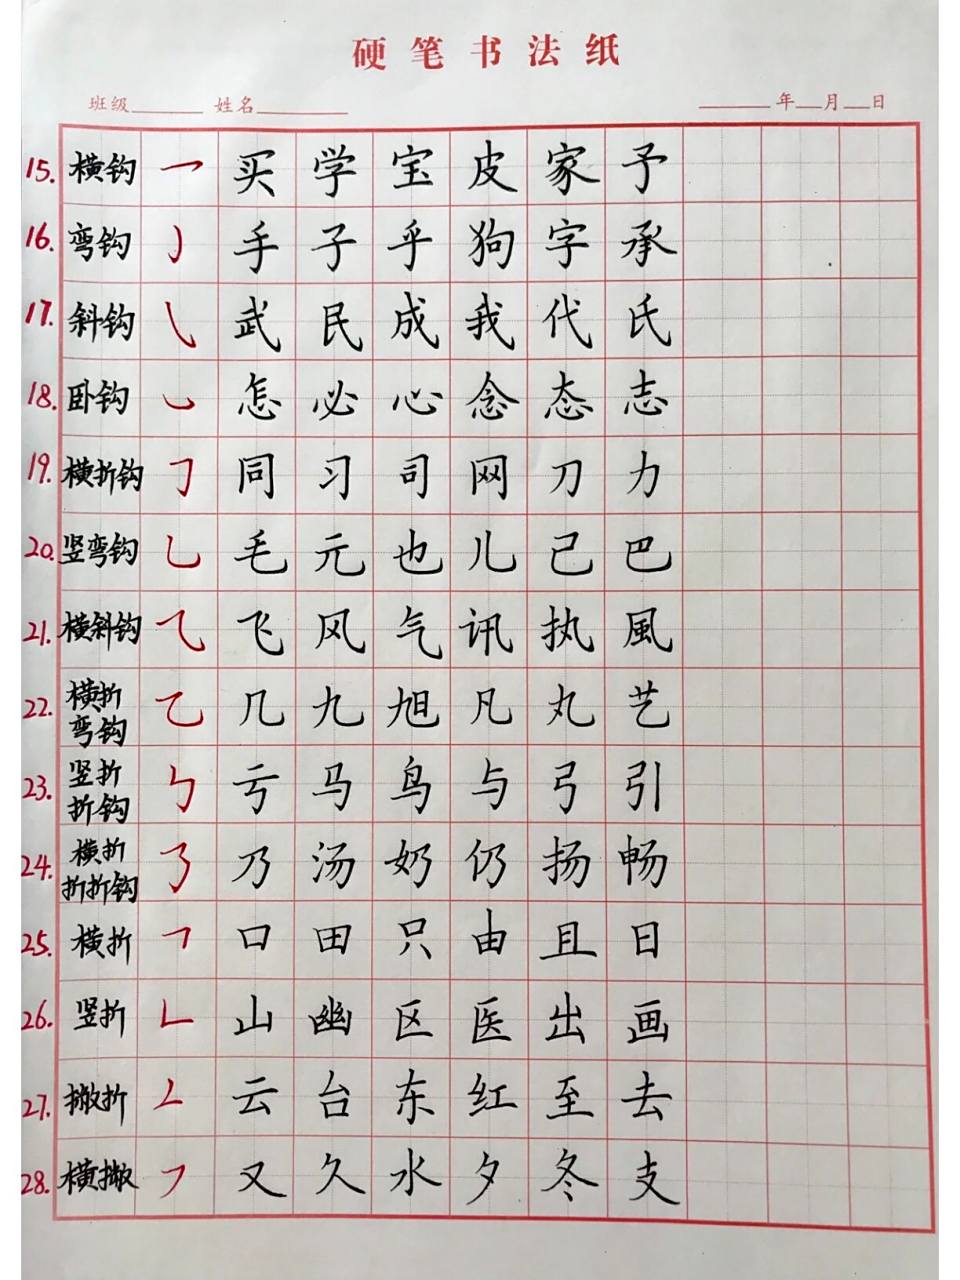 硬笔书法纸
班级 姓名 年 月 日
15. 横钩 ㇖ 买 学 宝 皮 家 予
16. 弯钩 ㇁ 手 子 乎 狗 字 承
17. 斜钩 ㇂ 武 民 成 我 代 氏
18. 卧钩 ㇃ 怎 必 心 念 态 志
19. 横折钩 ㇆ 同 习 司 网 刀 力
20. 竖弯钩 ㇟ 毛 元 也 儿 己 巴
21. 横斜钩 ⺄ 飞 风 气 讯 执 風
22. 横折弯钩 ㇈ 几 九 旭 凡 丸 艺
23. 竖折折钩 ㇉ 亏 马 鸟 与 弓 引
24. 横折折折钩 ㇡ 乃 汤 奶 仍 扬 畅
25. 横折 ㇕ 口 田 只 由 且 日
26. 竖折 ㇗ 山 幽 区 医 出 画
27. 撇折 ㇜ 云 台 东 红 至 去
28. 横撇 ㇇ 又 久 水 夕 冬 支